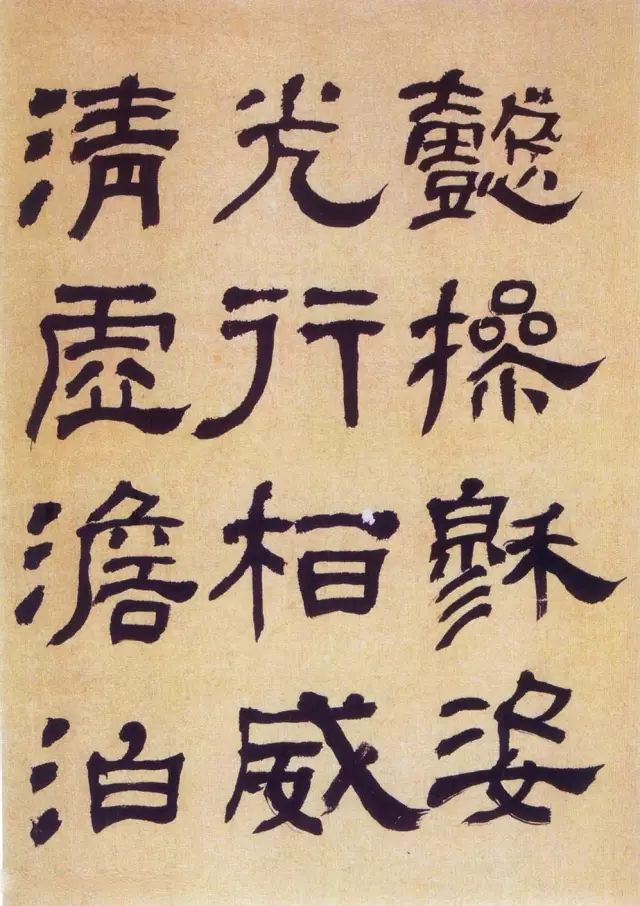 懿操穆姿
光行栢威
清虛澹泊